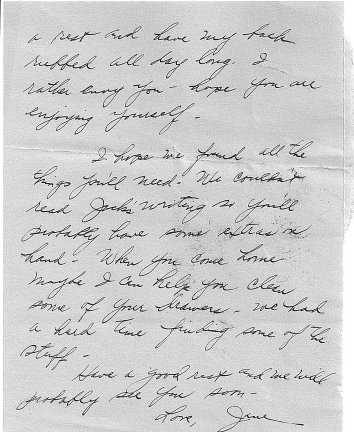 a rest and have my back
rubbed all day long. I
rather envy you - hope you are
enjoying yourself -
I hope we found all the
things you'll need. We couldn't
read writing so you'll
probably have some extras on
hand. When you come home
maybe I can help you clean
some of your drawers - we had
a hard time finding some of the
stuff -
Have a good rest and we will
probably see you soon -
Love, Jane